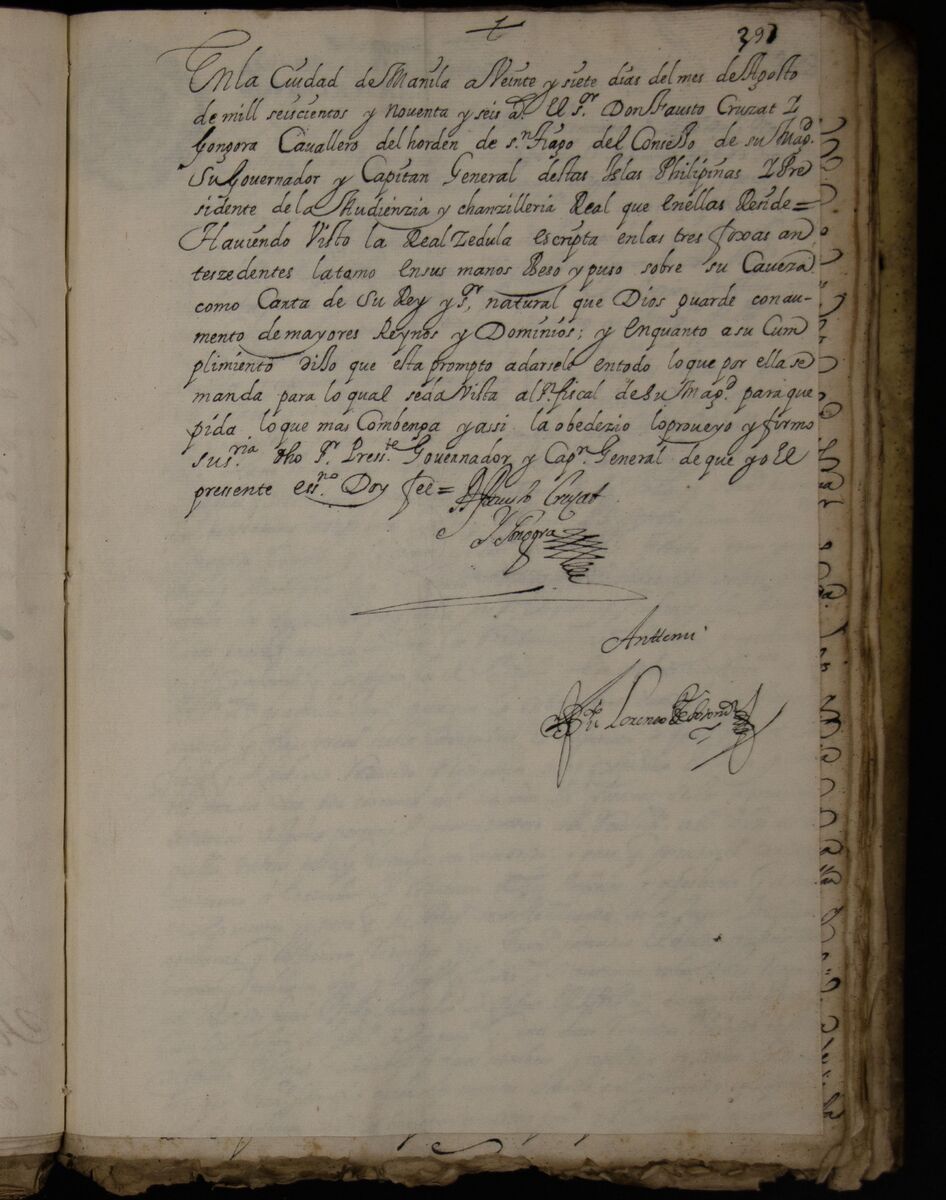 397
En la Ciudad de Manila a Veinte y siete dias del mes de Agosto
de mill seiscientos y noventa y seis aˢ. El Sʳ. Don Fausto Cruzat I
Gongora Cavallero del horden de sⁿtiago del Conssejo de su Magᵈ.
Su Governador y Capitan General destas Islas Philipinas I Pre
sidente de la Audienzia y chanzilleria Real que en ellas Reside =
Haviendo Visto la Real Zedula escripta en las tres foxas an
teszedentes la tomo en sus manos Beso y puso sobre su Caveza
como Carta de Su Rey y Sʳ. natural que Dios guarde con au-
mento de mayores Reynos y Dominios; y en quanto a su Cum
plimiento dijo que esta prompto a darsele en todo lo que por ella se
manda para lo qual se da Vista al Sʳ. fiscal de Su Magᵈ. para que
pida lo que mas Combenga y assi la obedezio lo proveyo y firmo
su sʳⁱᵃ. dho Sʳ. Pressᵗᵉ. Governador y Capⁿ. General de que yo El
pressente essⁿᵒ. Doy fee =
Dⁿ Fausto Cruzat
Y Gongora
Anttemi
Lorenso